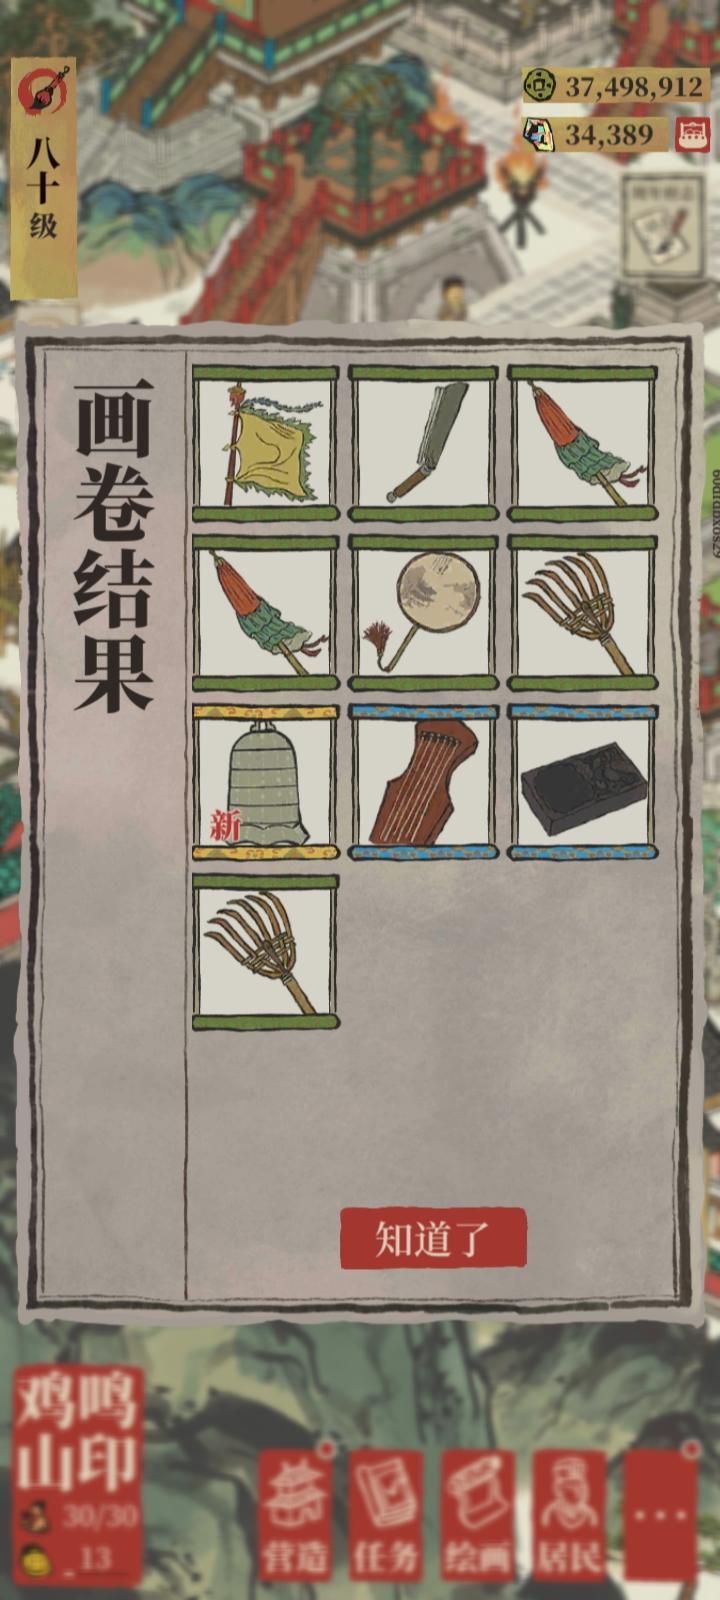 八十级
37,498,912
34,389
画卷结果
新
知道了
鸡鸣
山印
30/30
13
营造
任务
绘画
居民